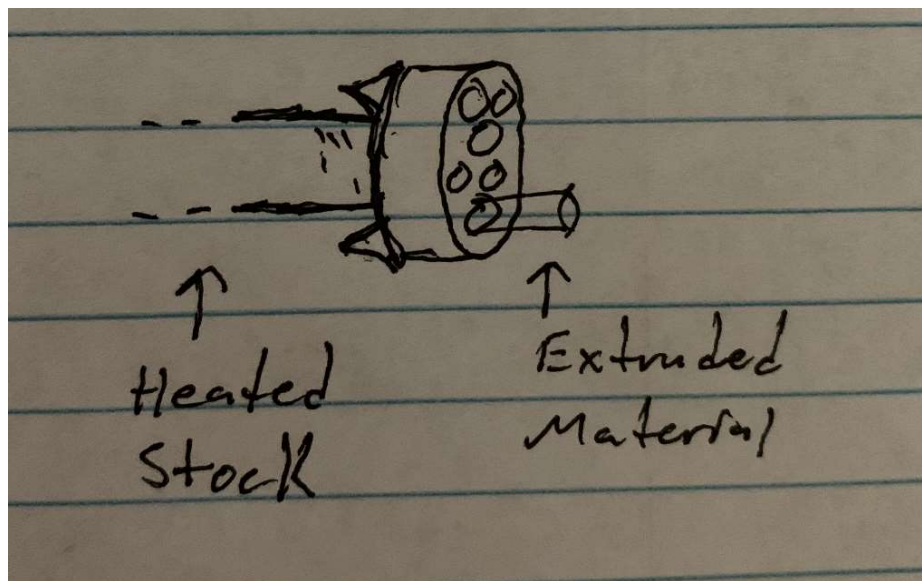 Heated
Stock
Extruded
Material